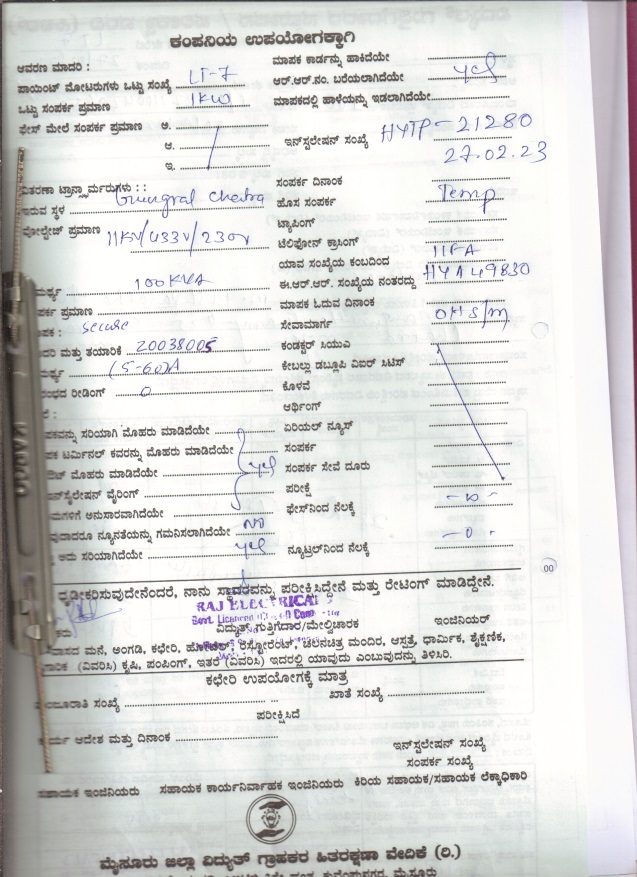 ಕಂಪನಿಯ ಉಪಯೋಗಕ್ಕಾಗಿ
ಆವರಣ ಮಾದರಿ :
ಮಾಪಕ ಕಾರ್ಡನ್ನು ಹಾಕಿದೆಯೇ
ಪಾಯಿಂಟ್ ಮೋಟರುಗಳು ಒಟ್ಟು ಸಂಖ್ಯೆ LT-7
ಆರ್.ಆರ್.ನಂ. ಬರೆಯಲಾಗಿದೆಯೇ yes
ಒಟ್ಟು ಸಂಪರ್ಕ ಪ್ರಮಾಣ 1KW
ಮಾಪಕದಲ್ಲಿ ಹಾಳೆಯನ್ನು ಇಡಲಾಗಿದೆಯೇ
ಫೇಸ್ ಮೇಲೆ ಸಂಪರ್ಕ ಪ್ರಮಾಣ ಅ.
ಆ.
ಇನ್‌ಸ್ಟಲೇಷನ್ ಸಂಖ್ಯೆ HYTP-21280
ಇ.
27.02.23
ವಿತರಣಾ ಟ್ರಾನ್ಸ್ಫಾರ್ಮರುಗಳು : :
ಸಂಪರ್ಕ ದಿನಾಂಕ
ಇರುವ ಸ್ಥಳ
ಹೊಸ ಸಂಪರ್ಕ Temp
ವೋಲ್ಟೇಜ್ ಪ್ರಮಾಣ 11KV/433V/230V
ಟ್ಯಾಪಿಂಗ್
ಟೆಲಿಫೋನ್ ಕ್ರಾಸಿಂಗ್
ಯಾವ ಸಂಖ್ಯೆಯ ಕಂಬದಿಂದ
ಮರ್ಥ್ಯ 100KVA
ಈ.ಆರ್.ಆರ್. ಸಂಖ್ಯೆಯ ನಂತರದ್ದು HYA49830
ಪರ್ಕ ಪ್ರಮಾಣ
ಮಾಪಕ ಓದುವ ದಿನಾಂಕ
ಪಕ : secure
ಸೇವಾಮಾರ್ಗ OHS/M
ದರಿ ಮತ್ತು ತಯಾರಿಕೆ 20038005
ಕಂಡಕ್ಟರ್ ಸಿಯುಎ
ಮರ್ಥ್ಯ (5-60)A
ಕೇಬಲ್ಲು ಡಬ್ಲೂಪಿ ವಿಐರ್ ಸಿಟಿಸ್
ರಂಭದ ರೀಡಿಂಗ್ 0
ಕೊಳವೆ
ಆರ್ಥಿಂಗ್
ಪಕವನ್ನು ಸರಿಯಾಗಿ ಮೊಹರು ಮಾಡಿದೆಯೇ
ಏರಿಯಲ್ ನ್ಯೂಸ್
ಪಕ ಟರ್ಮಿನಲ್ ಕವರನ್ನು ಮೊಹರು ಮಾಡಿದೆಯೇ
ಸಂಪರ್ಕ
ಮೊಹರು ಮಾಡಿದೆಯೇ yes
ಸಂಪರ್ಕ ಸೇವೆ ದೂರು
ನ್‌ಸ್ಟಲೇಷನ್ ವೈರಿಂಗ್
ಪರೀಕ್ಷೆ
ಮಗಳಿಗೆ ಅನುಸಾರವಾಗಿದೆಯೇ
ಫೇಸ್‌ನಿಂದ ನೆಲಕ್ಕೆ
ವುದಾದರೂ ನ್ಯೂನತೆಯನ್ನು ಗಮನಿಸಲಾಗಿದೆಯೇ No
ಅದು ಸರಿಯಾಗಿದೆಯೇ yes
ನ್ಯೂಟ್ರಲ್‌ನಿಂದ ನೆಲಕ್ಕೆ -0-
ದೃಢೀಕರಿಸುವುದೇನೆಂದರೆ, ನಾನು ಸ್ಥಾವರವನ್ನು ಪರೀಕ್ಷಿಸಿದ್ದೇನೆ ಮತ್ತು ರೇಟಿಂಗ್ ಮಾಡಿದ್ದೇನೆ.
RAJ ELECTRICAL
Govt. Licenced
ವಿದ್ಯುತ್ ಗುತ್ತಿಗೆದಾರ/ಮೇಲ್ವಿಚಾರಕ
ಇಂಜಿನಿಯರ್
ವಾಸದ ಮನೆ, ಅಂಗಡಿ, ಕಛೇರಿ, ಹೋಟೆಲ್, ರೆಸ್ಟೋರೆಂಟ್, ಚಲನಚಿತ್ರ ಮಂದಿರ, ಆಸ್ಪತ್ರೆ, ಧಾರ್ಮಿಕ, ಶೈಕ್ಷಣಿಕ,
(ವಿವರಿಸಿ) ಕೃಷಿ, ಪಂಪಿಂಗ್, ಇತರೆ (ವಿವರಿಸಿ) ಇದರಲ್ಲಿ ಯಾವುದು ಎಂಬುವುದನ್ನು ತಿಳಿಸಿರಿ.
ಕಛೇರಿ ಉಪಯೋಗಕ್ಕೆ ಮಾತ್ರ
ಮಂಜೂರಾತಿ ಸಂಖ್ಯೆ
ಖಾತೆ ಸಂಖ್ಯೆ
ಪರೀಕ್ಷಿಸಿದೆ
ಕಾರ್ಯ ಆದೇಶ ಮತ್ತು ದಿನಾಂಕ
ಇನ್‌ಸ್ಟಲೇಷನ್ ಸಂಖ್ಯೆ
ಸಂಪರ್ಕ ಸಂಖ್ಯೆ
ಸಹಾಯಕ ಇಂಜಿನಿಯರು ಸಹಾಯಕ ಕಾರ್ಯನಿರ್ವಾಹಕ ಇಂಜಿನಿಯರು ಕಿರಿಯ ಸಹಾಯಕ/ಸಹಾಯಕ ಲೆಕ್ಕಾಧಿಕಾರಿ
ಮೈಸೂರು ಜಿಲ್ಲಾ ವಿದ್ಯುತ್ ಗ್ರಾಹಕರ ಹಿತರಕ್ಷಣಾ ವೇದಿಕೆ (ರಿ.)